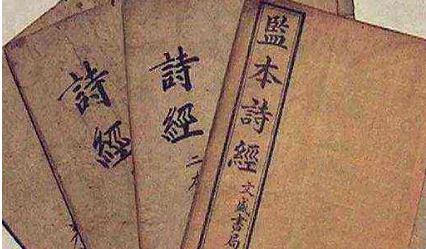 監本詩經
文盛書局
詩經
二
詩經